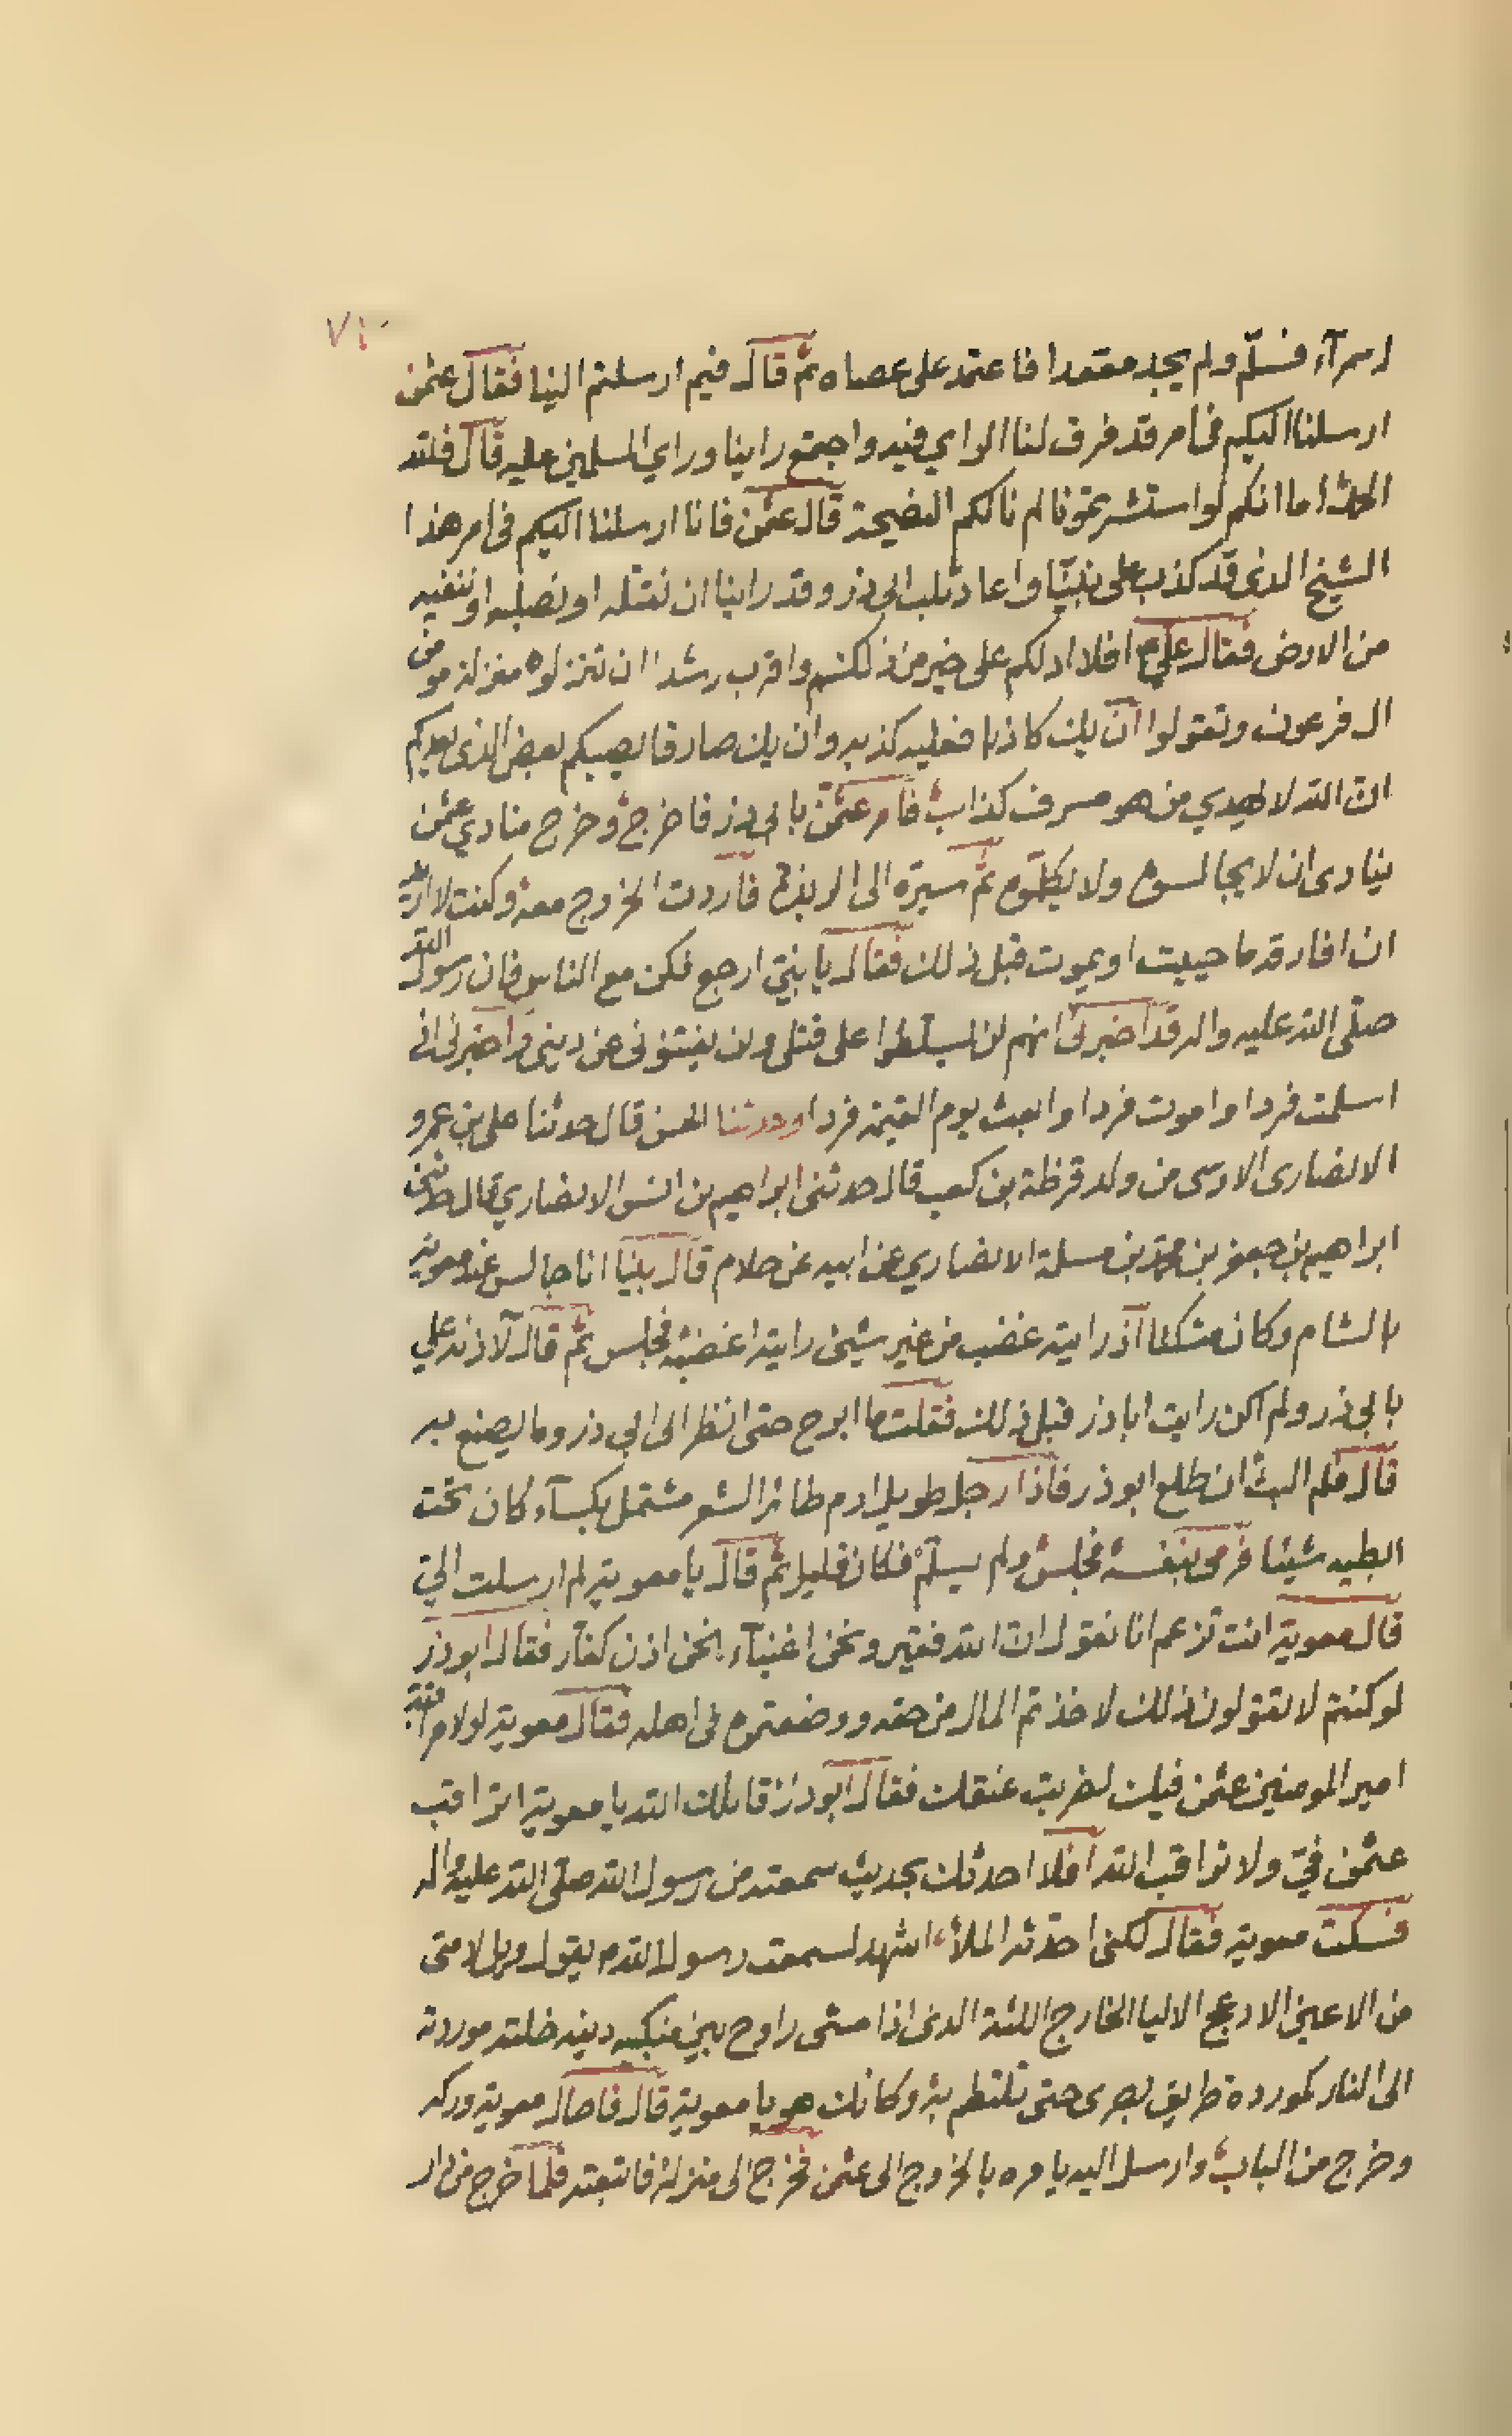 ٧١
اسرآء فسلّم ولم يجد مقعدا فاعتمد على عصاه ثم قال فيم ارسلتم الينا فقال عثمن
ارسلنا اليكم فى امر قد فرق لنا الراي فيه واجتمع راينا وراي المسلمين عليه قال فلله
الحمد اما انكم لو استشرتمونا لم نالكم النصيحة قال عثمن فانا ارسلنا اليكم فى امر هذا
الشيخ الذى قد كذب على نبيّنا واعاد ثلب ابى ذر وقد راينا ان نقتله او نصلبه او ننفيه
من الارض فقال علي افلا ادلكم على خير من ذلكم واقرب رشدا ان تنزلوه منزلة مومن
ال فرعون وتقولوا ان يك كاذبا فعليه كذبه وان يك صادقا يصبكم بعض الذى يعدكم
ان الله لا يهدي من هو مسرف كذاب فامر عثمن بابى ذر فاخرج وخرج منادي عثمن
ينادى ان لا يجالسوه ولا يكلموه ثم سيره الى الربذة فاردت الخروج معه وكنت لا
ان افارقه ما حييت او يموت قبل ذلك فقال يا بني ارجع فكن مع الناس فان رسول الله
صلّى الله عليه واله قد اخبرنى انهم لن يسلّطوا على قتلى ولن يفتنونى عن دينى واخبرنى انى
اسلمت فردا واموت فردا وابعث يوم القيمة فردا وحدثنا الحسن قال حدثنا على بن عمرو
الانصارى الاوسى من ولد قرظة بن كعب قال حدثنى ابراهيم بن انس الانصاري قال حدثنى
ابراهيم بن جعفر بن محمد بن مسلمة الانصاري عن ابيه عن حلام قال بينا انا جالس عند معوية
بالشام وكان متكئا اذ رايته غضب من غير شيئ رايته اغضبه فجلس ثم قال لآذنه علي
بابى ذر ولم اكن رايت اباذر قبل ذلك فقلت ما ابرح حتى انظر الى ابى ذر وما يصنع به
قال فلم البث ان طلع ابوذر فاذا رجل طويل ادم طائر الشعر مشتمل بكسآء كان تحت
ابطيه شيئا فرمى بنفسه فجلس ولم يسلّم فكان قليل ثم قال يا معوية لم ارسلت الي
قال معوية انت تزعم انا نقول ان الله فقير ونحن اغنيآء نحن اذن كفار فقال ابوذر
لو كنتم لا تقولون ذلك لاخذتم المال من حقه ووضعتموه فى اهله فقال معوية لولا مراقبة
امير المومنين عثمن فيك لضربت عنقك فقال ابوذر قاتلك الله يا معوية اتراقب
عثمن فيّ ولا تراقب الله افلا احدثك بحديث سمعته من رسول الله صلّى الله عليه واله
فسكت معوية فقال لكنى احدّثه الملأ اشهد لسمعت رسول الله م يقول ويل لامتى
من الاعين الادعج الاليا الخارج اللثة الذى اذا مشى راوح بين منكبيه دينه خلقه موردة
الى النار كموردة طريق بصرى حتى تلتطم به وكانك هو يا معوية قال فامال معوية وركه
وخرج من الباب وارسل اليه يامره بالخروج الى عثمن فخرج الى منزله فاتبعته فلما خرج من دار